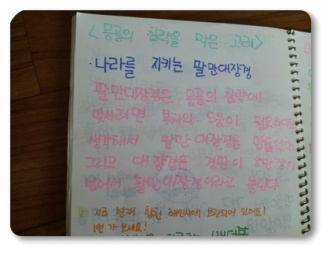 <몽골의 침략을 막은 고려>
· 나라를 지키는 팔만대장경
팔만대장경은 몽골의 침략에
맞서려면 부처의 도움이 필요하다고
생각해서 팔만대장경을 만들었다
그리고 대장경은 경판이 8만장이
넘어서 팔만대장경이라고 불린다
지금 현재 합천 해인사에 보관되어 있어요!
1번 가 보세요!